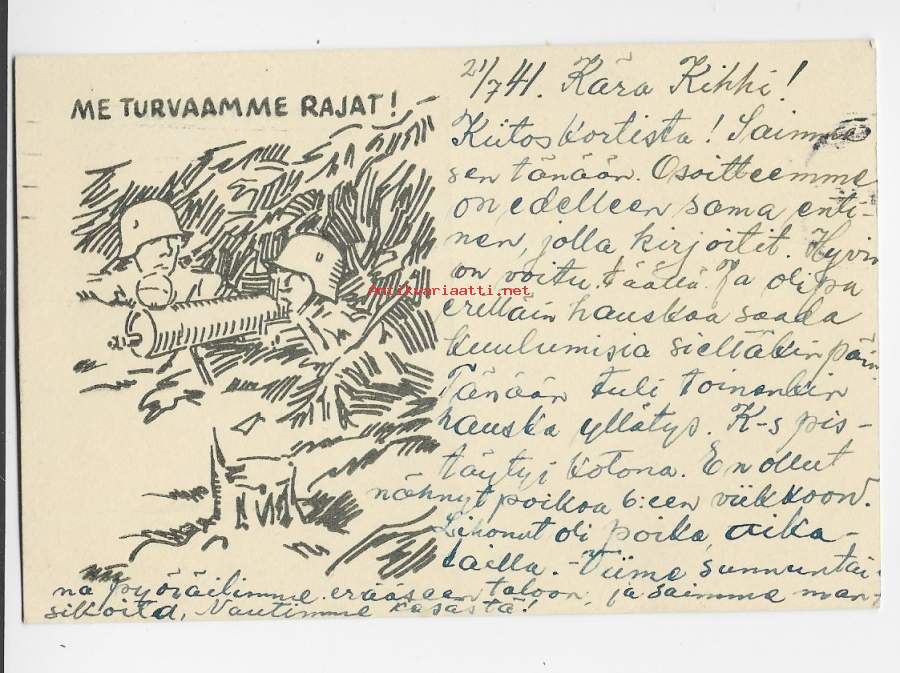 ME TURVAAMME RAJAT!
21/7 41. Kära Kihhi!
Kiitos kortista! Saimme
sen tänään. Osoitteemme
on edelleen sama enti-
nen, jolla kirjoitit. Hyvin
on voitu täällä. Ja olipa
erittäin hauskaa saada
kuulumisia sieltäkin päin
Tänään tuli toinenkin
hauska yllätys. K-s pis-
täytyi kotona. En ollut
nähnyt poikaa 6:een viikkoon.
Lihonut oli poika, aika-
lailla. - Viime sunnuntai-
na pyöräilimme erääseen taloon, ja saimme man-
sikoita, Nautimme kesästä!
Antikvariaatti.net